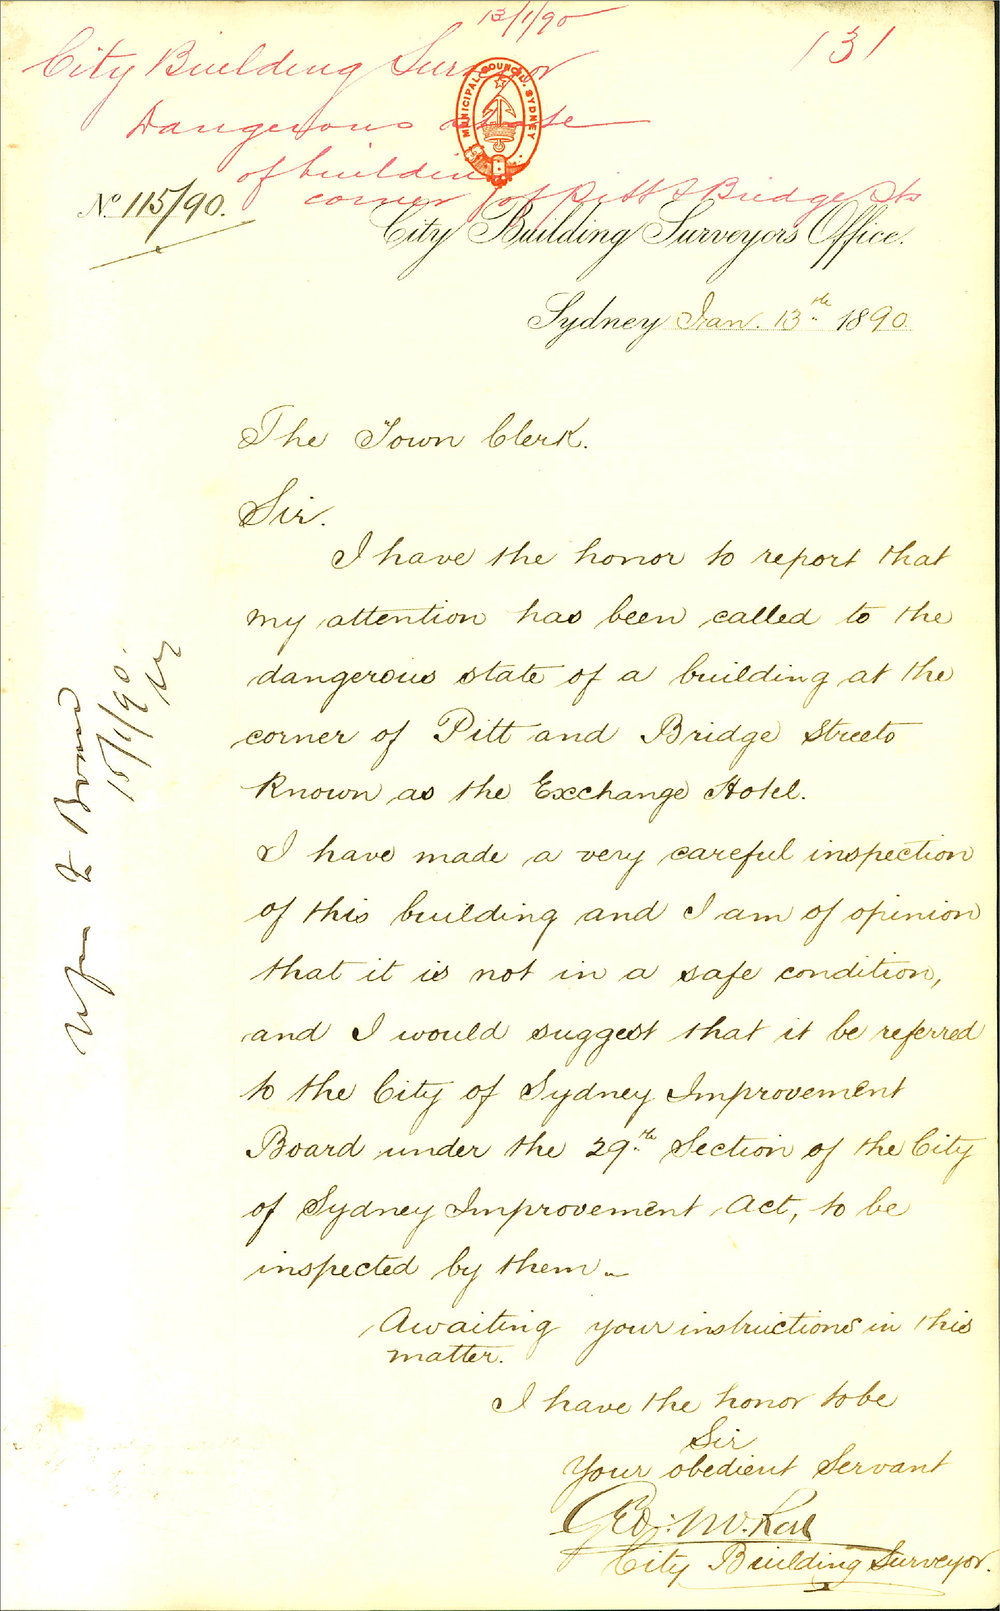 13/1/90
131
City Building Surveyor
Dangerous state
of building
corner of Pitt & Bridge Sts
MUNICIPAL COUNCIL SYDNEY
No 115/90.
City Building Surveyors Office.
Sydney Jan. 13th 1890
The Town Clerk.
Sir.
I have the honor to report that
my attention has been called to the
dangerous state of a building at the
corner of Pitt and Bridge Streets
Known as the Exchange Hotel.
I have made a very careful inspection
of this building and I am of opinion
that it is not in a safe condition,
and I would suggest that it be referred
to the City of Sydney Improvement
Board under the 29th Section of the City
of Sydney Improvement Act, to be
inspected by them
Awaiting your instructions in this
matter.
I have the honor to be
Sir
Your obedient Servant
Geo:
City Building Surveyor.
Board
15/1/90.